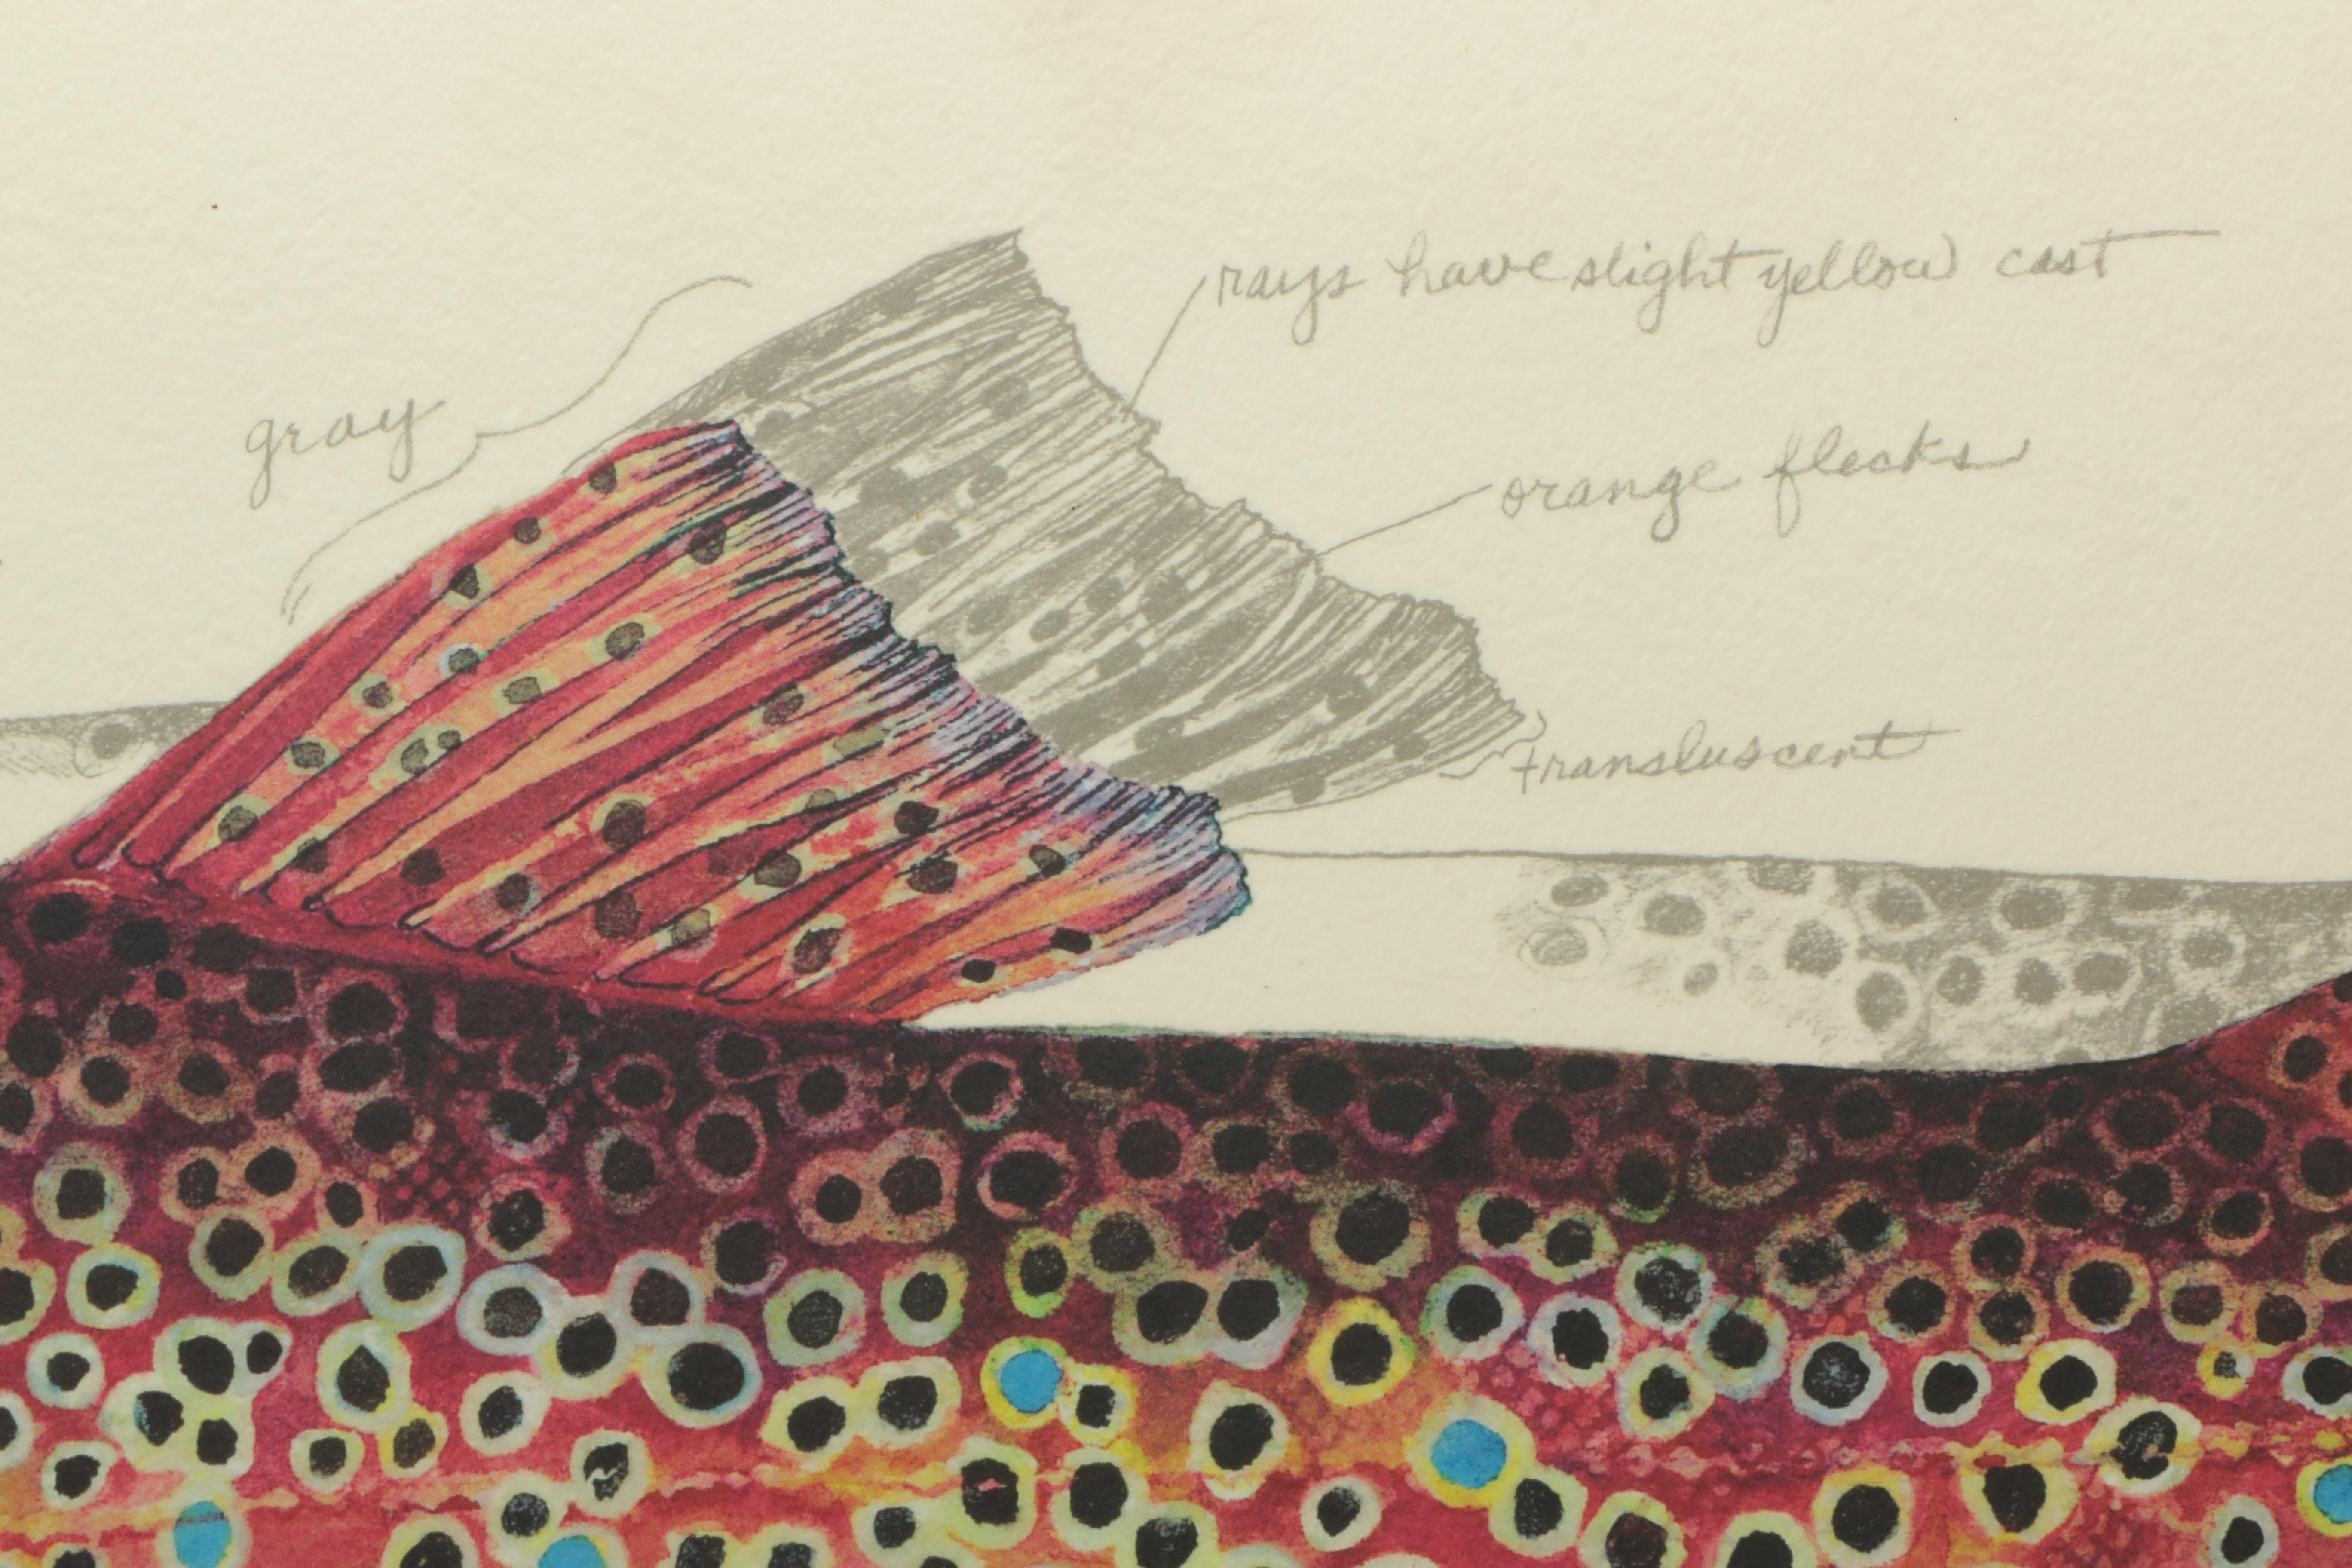 rays have slight yellow cast
gray
orange flecks
transluscent